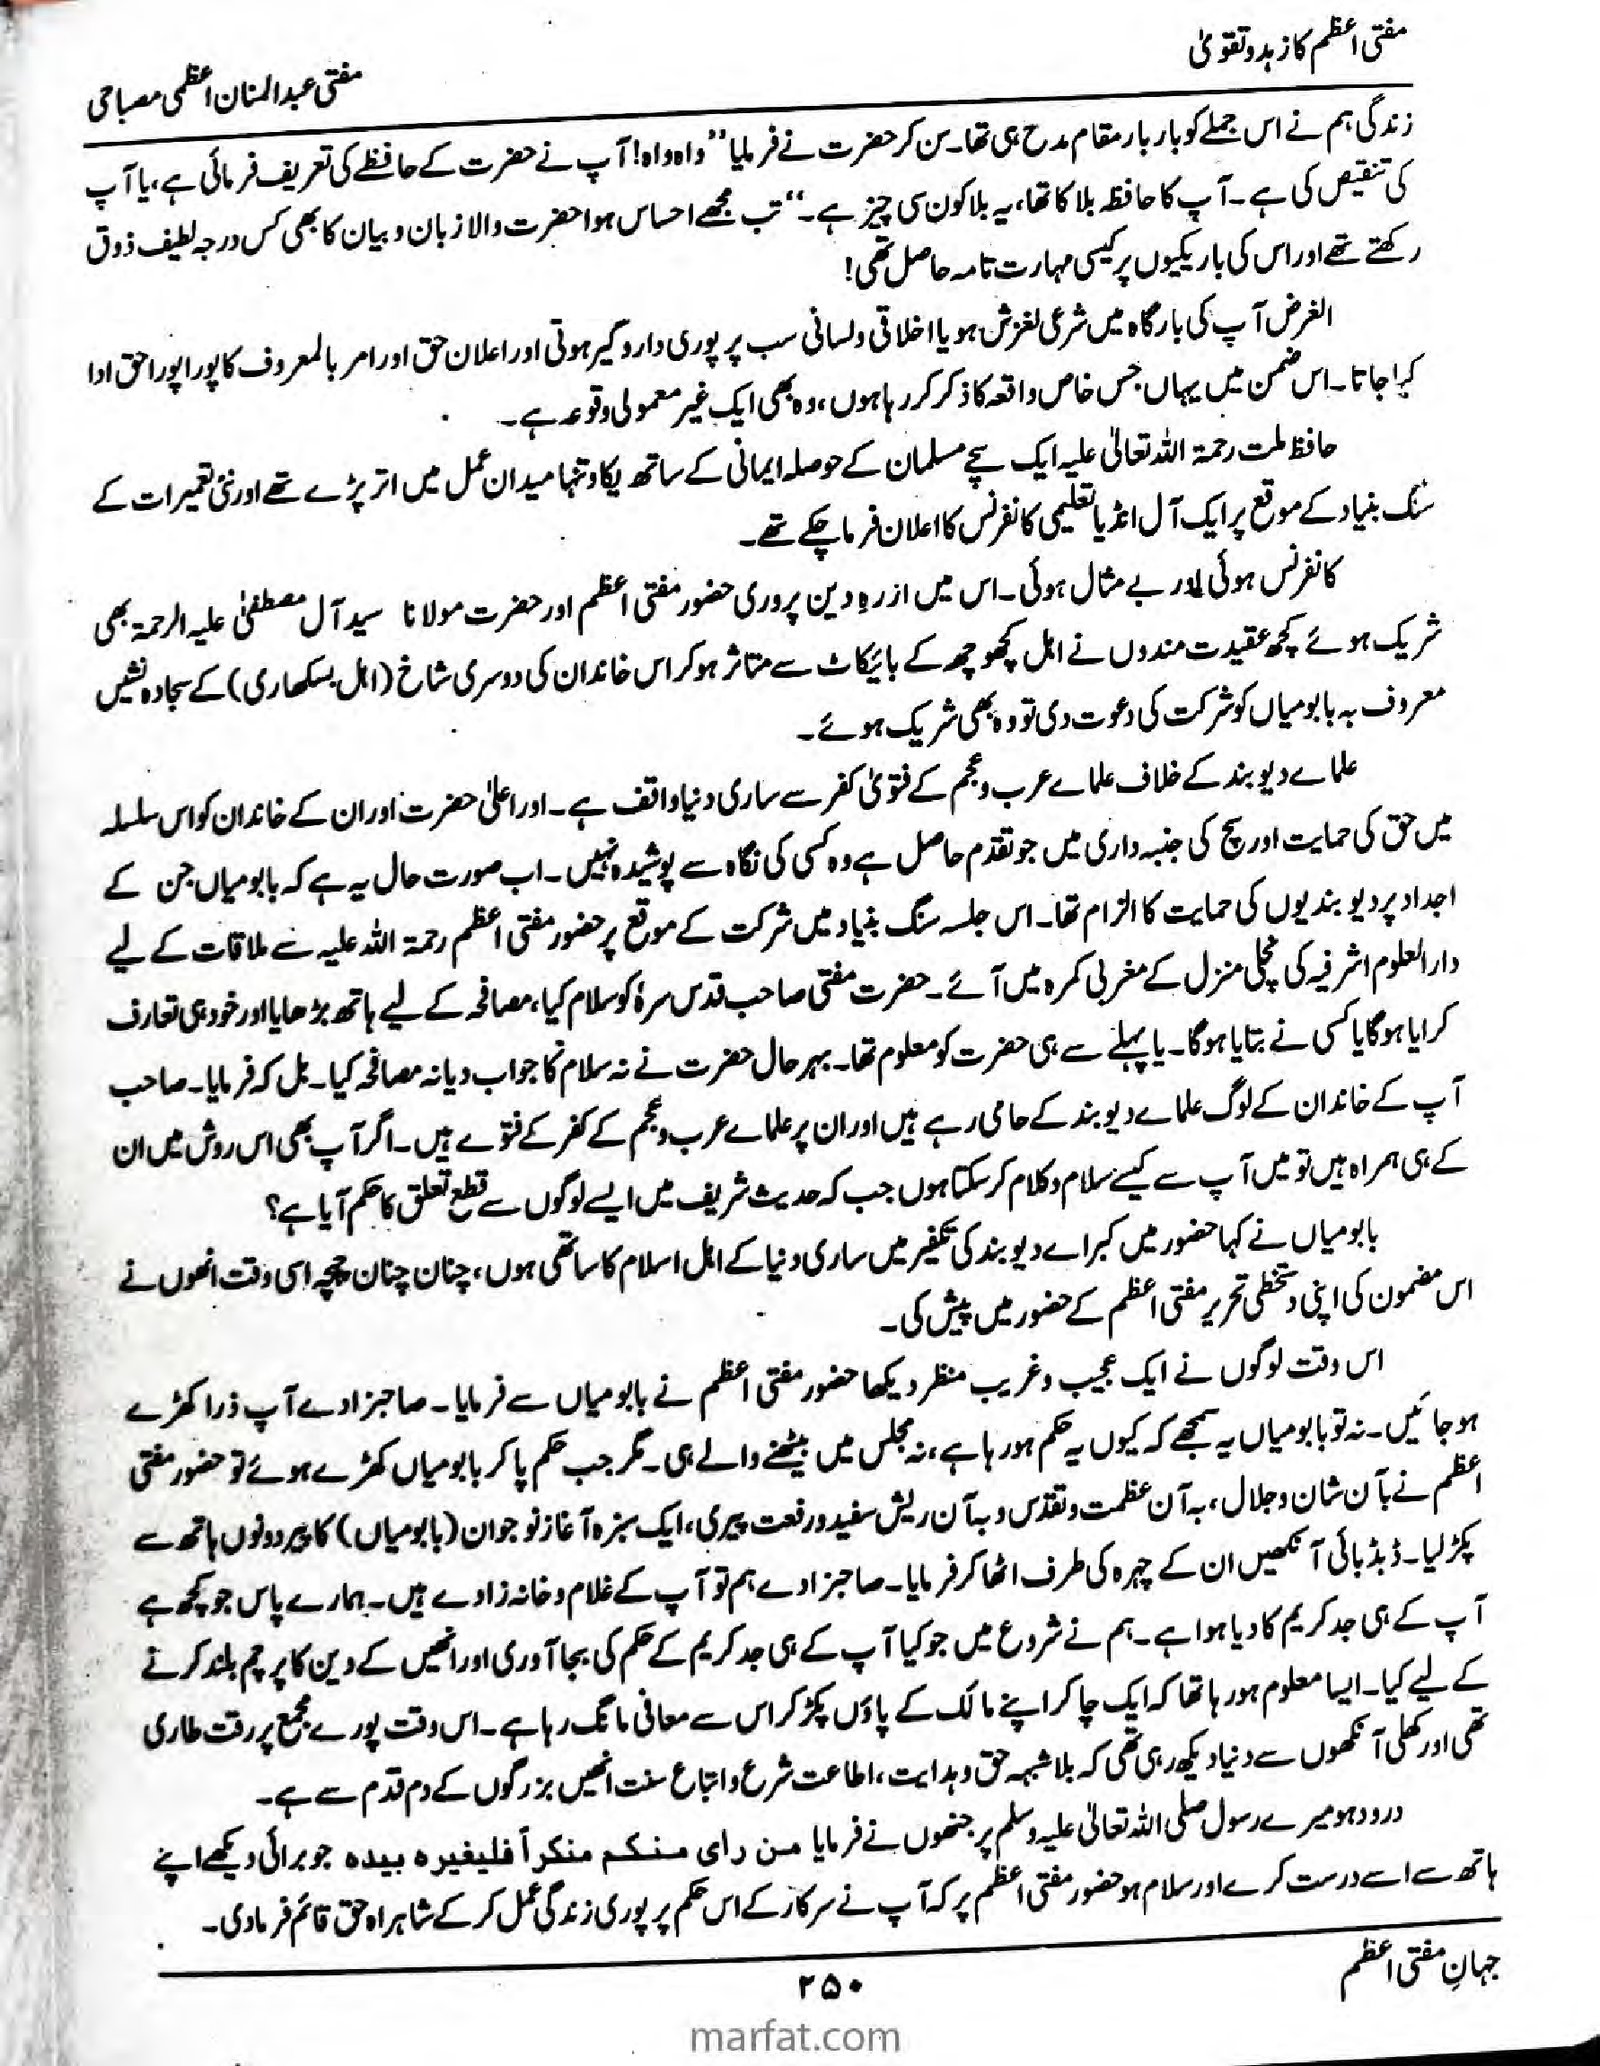 مفتی اعظم کا زہد و تقویٰ
مفتی عبدالمنان اعظمی مصباحی
زندگی ہم نے اس جملے کو بار بار مقام مدح ہی تھا۔ سن کر حضرت نے فرمایا ”واہ واہ! آپ نے حضرت کے حافظے کی تعریف فرمائی ہے، یا آپ
کی تنقیص کی ہے۔ آپ کا حافظہ بلا کا تھا، یہ بلا کون سی چیز ہے۔“ تب مجھے احساس ہوا حضرت والا زبان و بیان کا بھی کس درجہ لطیف ذوق
رکھتے تھے اور اس کی باریکیوں پر کیسی مہارت تامہ حاصل تھی!
الغرض آپ کی بارگاہ میں شرعی لغزش ہو یا اخلاقی ولسانی سب پر پوری دارو گیر ہوتی اور اعلان حق اور امر بالمعروف کا پورا پورا حق ادا
کیا جاتا۔ اس ضمن میں یہاں جس خاص واقعہ کا ذکر کر رہا ہوں، وہ بھی ایک غیر معمولی وقوعہ ہے۔
حافظ ملت رحمۃ اللہ تعالیٰ علیہ ایک سچے مسلمان کے حوصلہ ایمانی کے ساتھ یکا و تنہا میدان عمل میں اتر پڑے تھے اور نئی تعمیرات کے
سنگ بنیاد کے موقع پر ایک آل انڈیا تعلیمی کانفرنس کا اعلان فرما چکے تھے۔
کانفرنس ہوئی اور بے مثال ہوئی۔ اس میں از رہِ دین پروری حضور مفتی اعظم اور حضرت مولانا سید آل مصطفیٰ علیہ الرحمۃ بھی
شریک ہوئے کچھ عقیدت مندوں نے اہل کچھوچھ کے بائیکاٹ سے متاثر ہو کر اس خاندان کی دوسری شاخ (اہل بسکھاری) کے سجادہ نشیں
معروف بہ بابو میاں کو شرکت کی دعوت دی تو وہ بھی شریک ہوئے۔
علماے دیوبند کے خلاف علماے عرب و عجم کے فتویٰ کفر سے ساری دنیا واقف ہے۔ اور اعلیٰ حضرت اور ان کے خاندان کو اس سلسلہ
میں حق کی حمایت اور سچ کی جنبہ داری میں جو تقدم حاصل ہے وہ کسی کی نگاہ سے پوشیدہ نہیں۔ اب صورت حال یہ ہے کہ بابو میاں جن کے
اجداد پر دیوبندیوں کی حمایت کا الزام تھا۔ اس جلسہ سنگ بنیاد میں شرکت کے موقع پر حضور مفتی اعظم رحمۃ اللہ علیہ سے ملاقات کے لیے
دارالعلوم اشرفیہ کی نچلی منزل کے مغربی کمرہ میں آئے۔ حضرت مفتی صاحب قدس سرہٗ کو سلام کیا، مصافحہ کے لیے ہاتھ بڑھایا اور خود ہی تعارف
کرایا ہوگا یا کسی نے بتایا ہوگا۔ یا پہلے سے ہی حضرت کو معلوم تھا۔ بہر حال حضرت نے نہ سلام کا جواب دیا نہ مصافحہ کیا۔ بل کہ فرمایا۔ صاحب
آپ کے خاندان کے لوگ علماے دیوبند کے حامی رہے ہیں اور ان پر علماے عرب و عجم کے کفر کے فتوے ہیں۔ اگر آپ بھی اس روش میں ان
کے ہی ہمراہ ہیں تو میں آپ سے کیسے سلام و کلام کر سکتا ہوں جب کہ حدیث شریف میں ایسے لوگوں سے قطع تعلق کا حکم آیا ہے؟
بابو میاں نے کہا حضور میں کبراے دیوبند کی تکفیر میں ساری دنیا کے اہل اسلام کا ساتھی ہوں، چنان چنان چچہ اسی وقت انھوں نے
اس مضمون کی اپنی دستخطی تحریر مفتی اعظم کے حضور میں پیش کی۔
اس وقت لوگوں نے ایک عجیب و غریب منظر دیکھا حضور مفتی اعظم نے بابو میاں سے فرمایا۔ صاحبزادے آپ ذرا کھڑے
ہو جائیں۔ نہ تو بابو میاں یہ سمجھے کہ کیوں یہ حکم ہو رہا ہے، نہ مجلس میں بیٹھنے والے ہی۔ مگر جب حکم پا کر بابو میاں کھڑے ہوئے تو حضور مفتی
اعظم نے بآن شان و جلال، بہ آن عظمت و تقدس و بہ آن ریش سفید و رفعت پیری، ایک سبزہ آغاز نوجوان (بابو میاں) کا پیر دونوں ہاتھ سے
پکڑ لیا۔ ڈبڈبائی آنکھیں ان کے چہرہ کی طرف اٹھا کر فرمایا۔ صاحبزادے ہم تو آپ کے غلام و خانہ زادے ہیں۔ ہمارے پاس جو کچھ ہے
آپ کے ہی جد کریم کا دیا ہوا ہے۔ ہم نے شروع میں جو کیا آپ کے ہی جد کریم کے حکم کی بجا آوری اور انھیں کے دین کا پرچم بلند کرنے
کے لیے کیا۔ ایسا معلوم ہو رہا تھا کہ ایک چاکر اپنے مالک کے پاؤں پکڑ کر اس سے معافی مانگ رہا ہے۔ اس وقت پورے مجمع پر رقت طاری
تھی اور کھلی آنکھوں سے دنیا دیکھ رہی تھی کہ بلاشبہہ حق و ہدایت، اطاعت شرع و اتباع سنت انھیں بزرگوں کے دم قدم سے ہے۔
درود ہو میرے رسول صلی اللہ تعالیٰ علیہ وسلم پر جنھوں نے فرمایا من رای منکم منکراً فلیغیرہ بیدہ جو برائی دیکھے اپنے
ہاتھ سے اسے درست کرے اور سلام ہو حضور مفتی اعظم پر کہ آپ نے سرکار کے اس حکم پر پوری زندگی عمل کر کے شاہراہ حق قائم فرمادی۔
جہانِ مفتی اعظم
۲۵۰
marfat.com